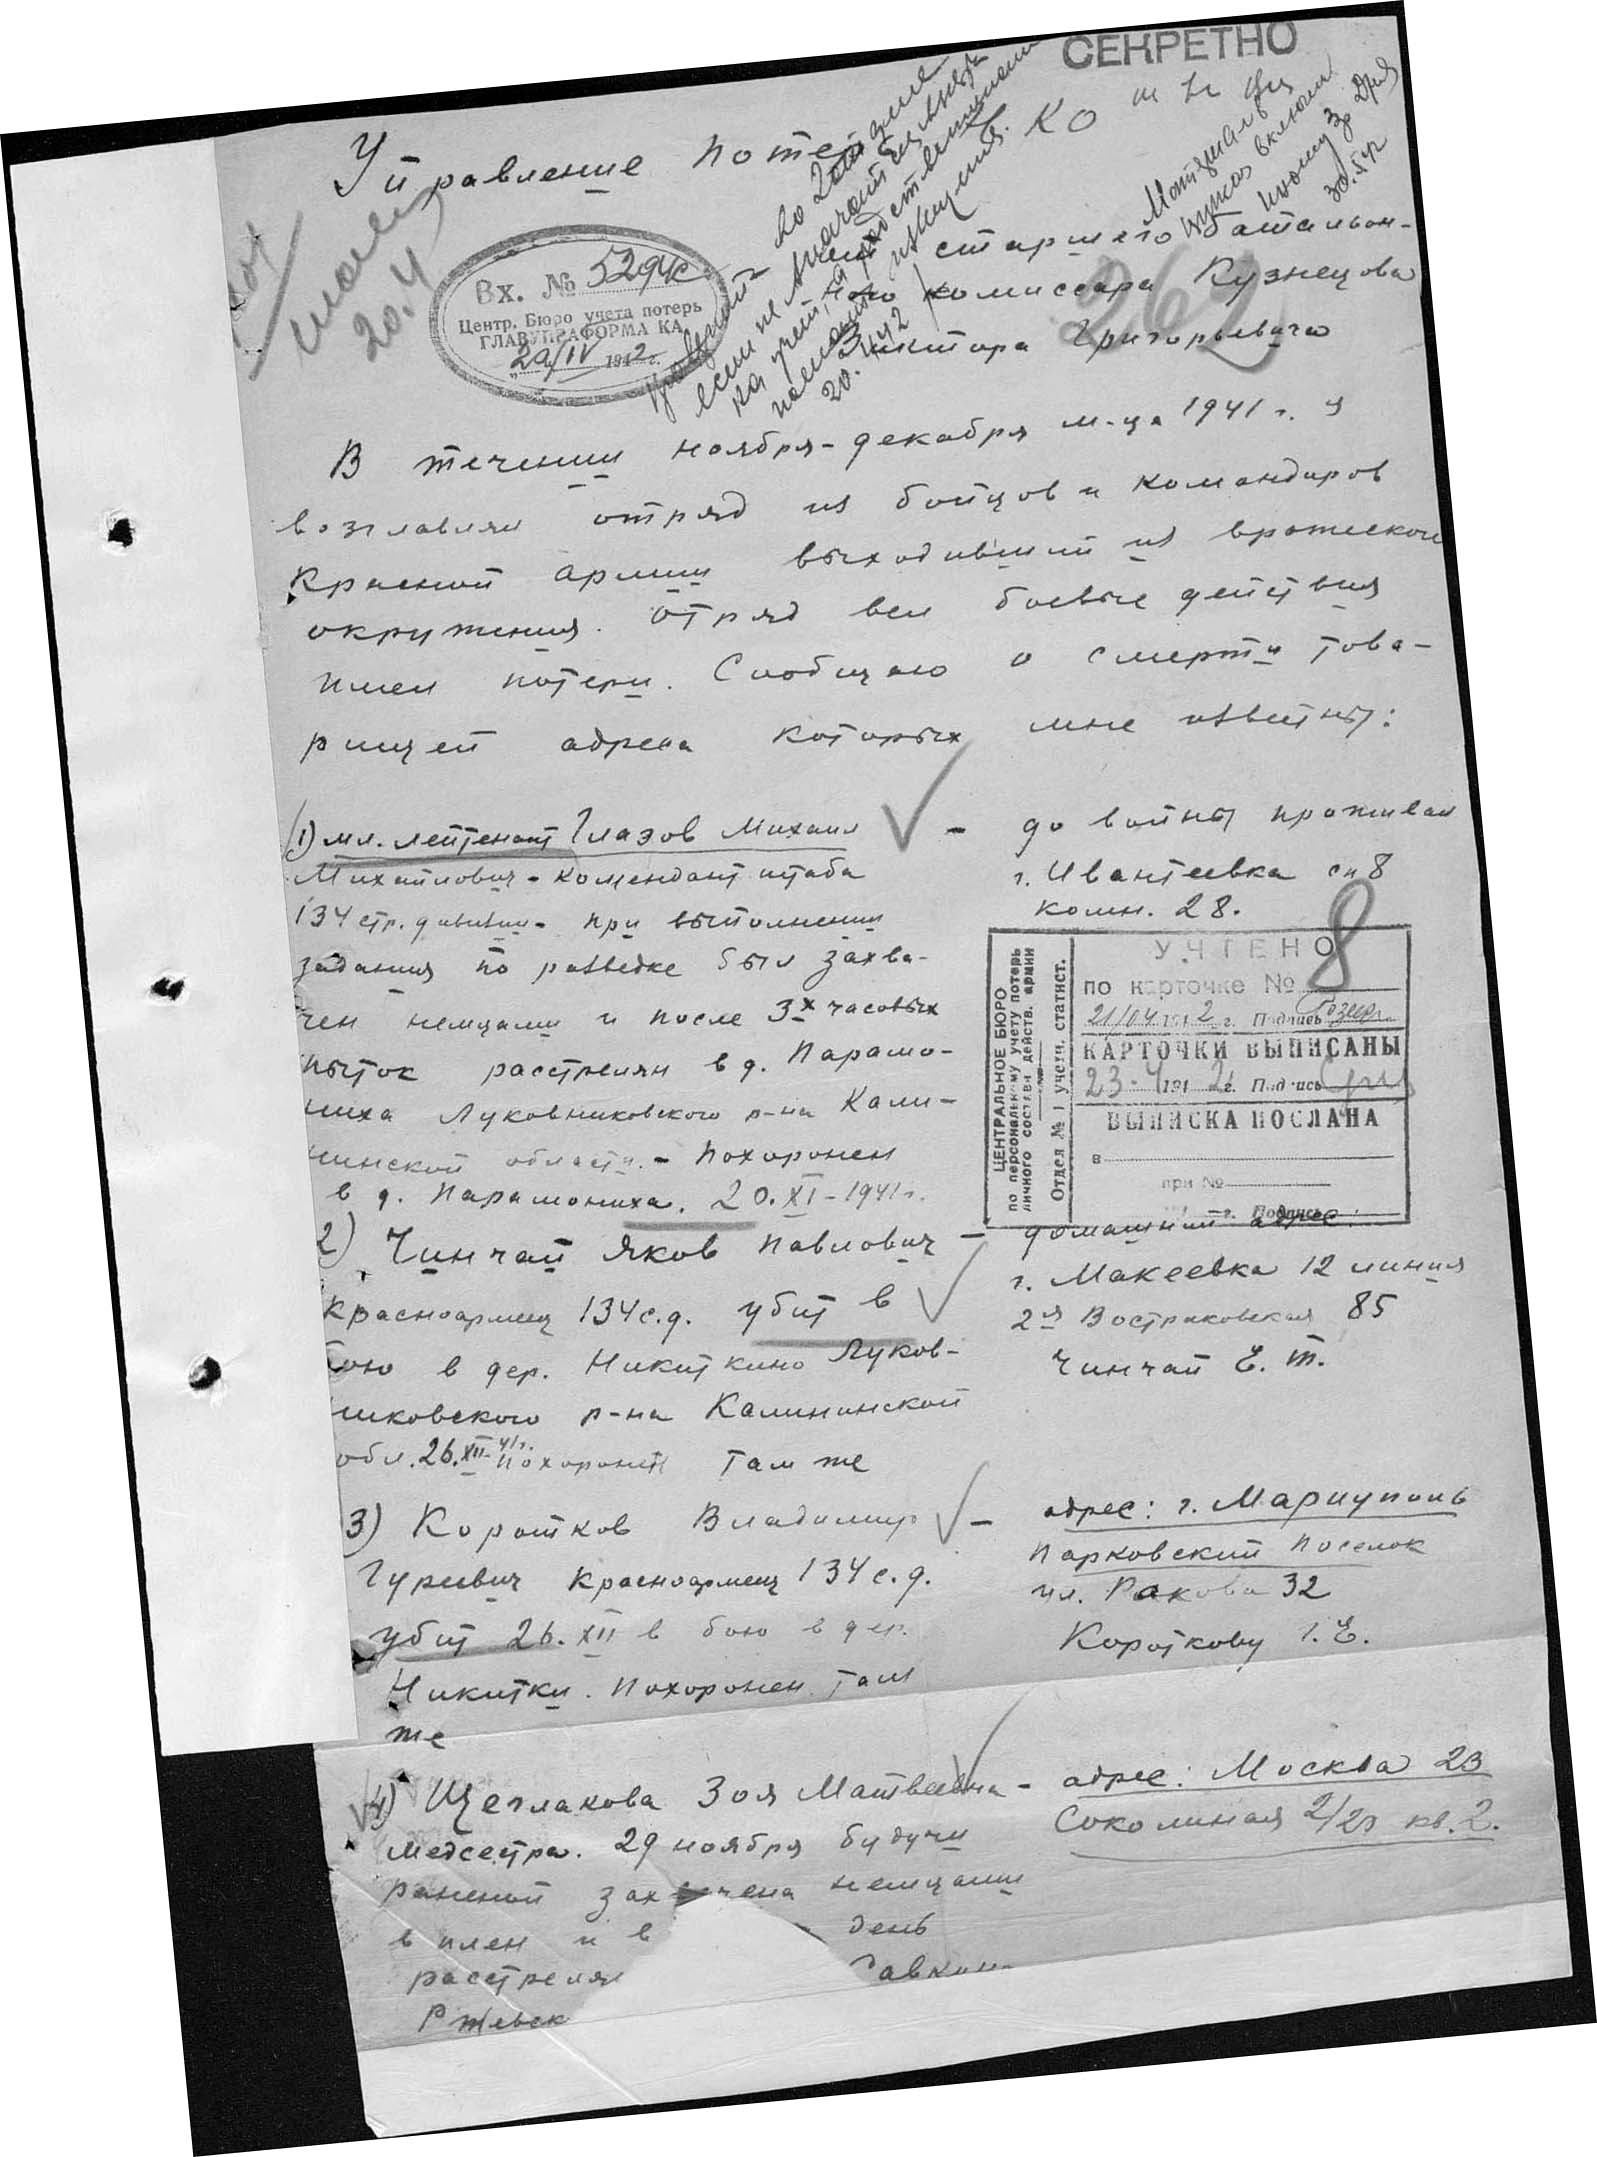 СЕКРЕТНО
Управление потерь
от старшего батальон-
ного комиссара Кузнецова
Виктора Григорьевича
262
20.4
Вх. № 5294с
Центр. Бюро учета потерь
ГЛАВУПРАФОРМА КА
"20/IV 1942 г.
если не значит
на учет,
20.4.42
Материал
30.5.42
В течении ноября-декабря м-ца 1941 г. я
возглавлял отряд из бойцов и командиров
Красной армии выходивший из вражеского
окружения. Отряд вел боевые действия
имел потери. Сообщаю о смерти това-
рищей адреса которых мне известны:
1) мл. лейтенант Глазов Михаил
Михайлович - комендант штаба
134 стр. дивизии - при выполнении
задания по разведке был захва-
чен немцами и после 3х часовых
пыток расстрелян в д. Парамо-
ниха Луковниковского р-на Кали-
нинской области. - Похоронен
в д. Парамониха. 20.XI-1941г.
- до войны проживал
г. Ивантеевка сп 8
комн. 28.
ЦЕНТРАЛЬНОЕ БЮРО
по персональному учету потерь
личного состава действ. армии
Отдел № 1 учетн. статист.
УЧТЕНО
по карточке № 8
21/04 1942 г. Подпись
КАРТОЧКИ ВЫПИСАНЫ
23-4 1942 г. Подпись
ВЫПИСКА ПОСЛАНА
в
при №
г. Подпись
2) Чинчай Яков Павлович
красноармеец 134 с.д. убит в
бою в дер. Никиткино Луков-
никовского р-на Калининской
обл. 26.XII 41г. Похоронен там же
- домашний адрес:
г. Макеевка 12 линия
2я Востриковская 85
Чинчай Е. Т.
3) Коротков Владимир
Гурьевич красноармеец 134 с.д.
убит 26.XII в бою в дер.
Никитки. Похоронен там
же
- адрес: г. Мариуполь
Парковский поселок
ул. Ракова 32
Короткову Г. Е.
4) Щеглакова Зоя Матвеевна
медсестра. 29 ноября будучи
раненой захвачена немцами
в плен и в день
расстрелян Савкин
Ржевск
- адрес: Москва 23
Соколиная 2/20 кв. 2.